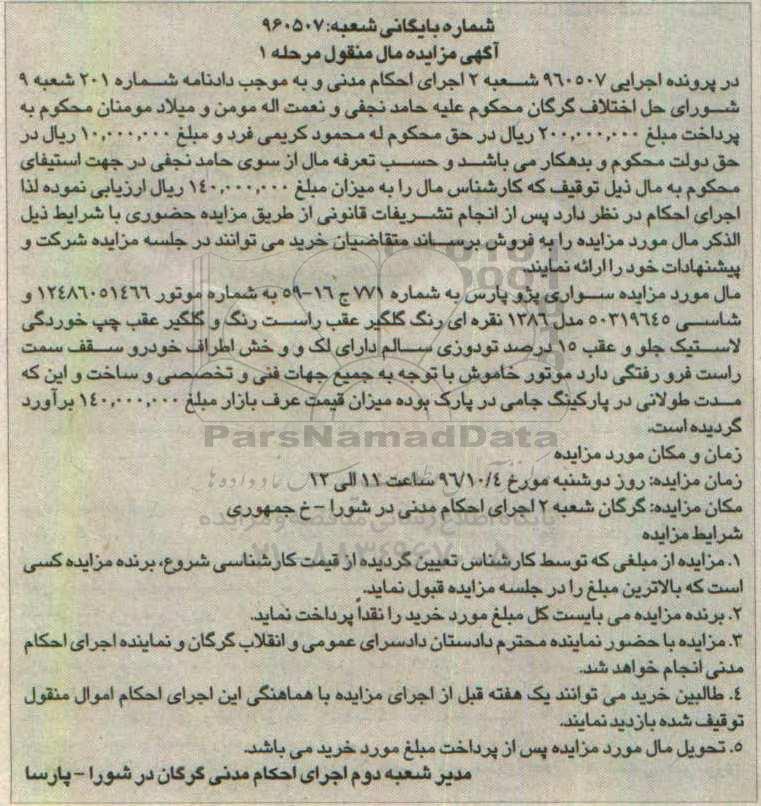 شماره بایگانی شعبه: ۹۶۰۵۰۷
آگهی مزایده مال منقول مرحله ۱
در پرونده اجرایی ۹۶۰۵۰۷ شعبه ۲ اجرای احکام مدنی و به موجب دادنامه شماره ۲۰۱ شعبه ۹
شورای حل اختلاف گرگان محکوم علیه حامد نجفی و نعمت اله مومن و میلاد مومنان محکوم به
پرداخت مبلغ ۲۰۰,۰۰۰,۰۰۰ ریال در حق محکوم له محمود کریمی فرد و مبلغ ۱۰,۰۰۰,۰۰۰ ریال در
حق دولت محکوم و بدهکار می باشد و حسب تعرفه مال از سوی حامد نجفی در جهت استیفای
محکوم به مال ذیل توقیف که کارشناس مال را به میزان مبلغ ۱۴۰,۰۰۰,۰۰۰ ریال ارزیابی نموده لذا
اجرای احکام در نظر دارد پس از انجام تشریفات قانونی از طریق مزایده حضوری با شرایط ذیل
الذکر مال مورد مزایده را به فروش برساند متقاضیان خرید می توانند در جلسه مزایده شرکت و
پیشنهادات خود را ارائه نمایند.
مال مورد مزایده سواری پژو پارس به شماره ۷۷۱ ج ۱۶-۵۹ به شماره موتور ۱۲۴۸۶۰۵۱۴۶۶ و
شاسی ۵۰۳۱۹۶۴۵ مدل ۱۳۸۶ نقره ای رنگ گلگیر عقب راست رنگ و گلگیر عقب چپ خوردگی
لاستیک جلو و عقب ۱۵ درصد تودوزی سالم دارای لک و و خش اطراف خودرو سقف سمت
راست فرو رفتگی دارد موتور خاموش با توجه به جمیع جهات فنی و تخصصی و ساخت و این که
مدت طولانی در پارکینگ جامی در پارک بوده میزان قیمت عرف بازار مبلغ ۱۴۰,۰۰۰,۰۰۰ برآورد
گردیده است.
ParsNamadData
زمان و مکان مورد مزایده
زمان مزایده: روز دوشنبه مورخ ۹۶/۱۰/۴ ساعت ۱۱ الی ۱۲
مکان مزایده: گرگان شعبه ۲ اجرای احکام مدنی در شورا - خ جمهوری
شرایط مزایده
۱. مزایده از مبلغی که توسط کارشناس تعیین گردیده از قیمت کارشناسی شروع، برنده مزایده کسی
است که بالاترین مبلغ را در جلسه مزایده قبول نماید.
۲. برنده مزایده می بایست کل مبلغ مورد خرید را نقداً پرداخت نماید.
۳. مزایده با حضور نماینده محترم دادستان دادسرای عمومی و انقلاب گرگان و نماینده اجرای احکام
مدنی انجام خواهد شد.
۴. طالبین خرید می توانند یک هفته قبل از اجرای مزایده با هماهنگی این اجرای احکام اموال منقول
توقیف شده بازدید نمایند.
۵. تحویل مال مورد مزایده پس از پرداخت مبلغ مورد خرید می باشد.
مدیر شعبه دوم اجرای احکام مدنی گرگان در شورا - پارسا